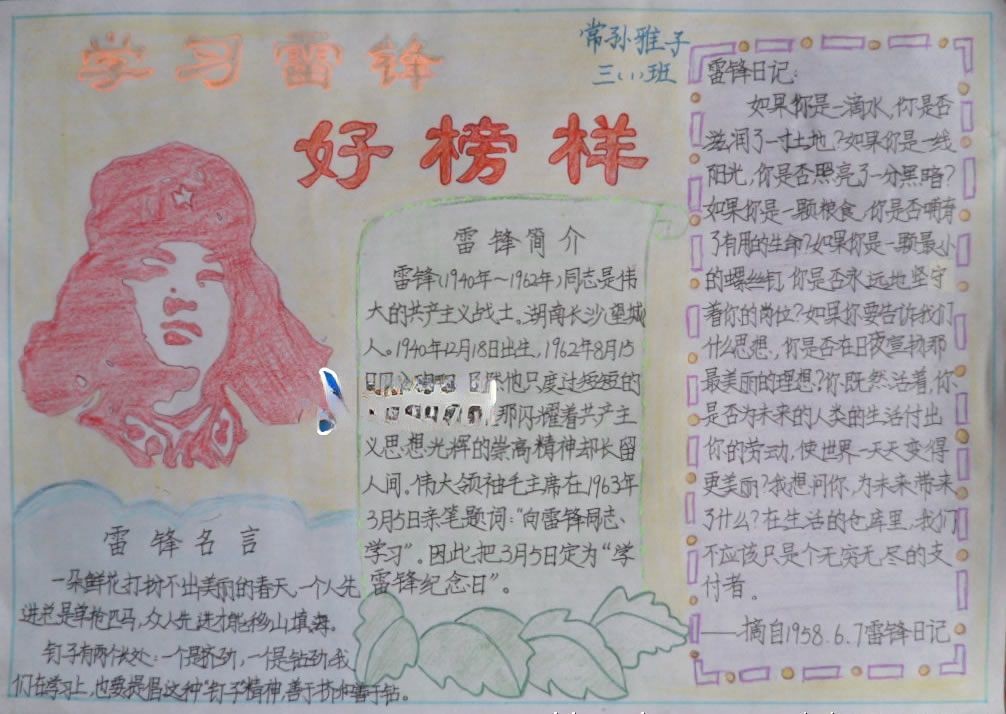 学习雷锋
好榜样
常孙雅子
三(1)班
雷锋简介
雷锋(1940年~1962年)同志是伟
大的共产主义战士。湖南长沙望城
人。1940年12月18日出生,1962年8月15
他只度过短短的
那闪耀着共产主
义思想光辉的崇高精神却长留
人间。伟大领袖毛主席在1963年
3月5日亲笔题词:“向雷锋同志
学习”。因此把3月5日定为“学
雷锋纪念日”。
雷锋名言
一朵鲜花打扮不出美丽的春天,一个人先
进总是单枪匹马,众人先进才能移山填海。
钉子有两个长处:一个是挤劲,一个是钻劲,我
们在学习上,也要提倡这种“钉子”精神,善于挤和善于钻。
雷锋日记:
如果你是一滴水,你是否
滋润了一寸土地?如果你是一线
阳光,你是否照亮了一分黑暗?
如果你是一颗粮食,你是否哺育
了有用的生命?如果你是一颗最小
的螺丝钉,你是否永远地坚守
着你的岗位?如果你要告诉我们
什么思想,你是否在日夜宣扬那
最美丽的理想?你既然活着,你
是否为未来的人类的生活付出
你的劳动,使世界一天天变得
更美丽?我想问你,为未来带来
了什么?在生活的仓库里,我们
不应该只是个无穷无尽的支
付者。
——摘自1958.6.7雷锋日记